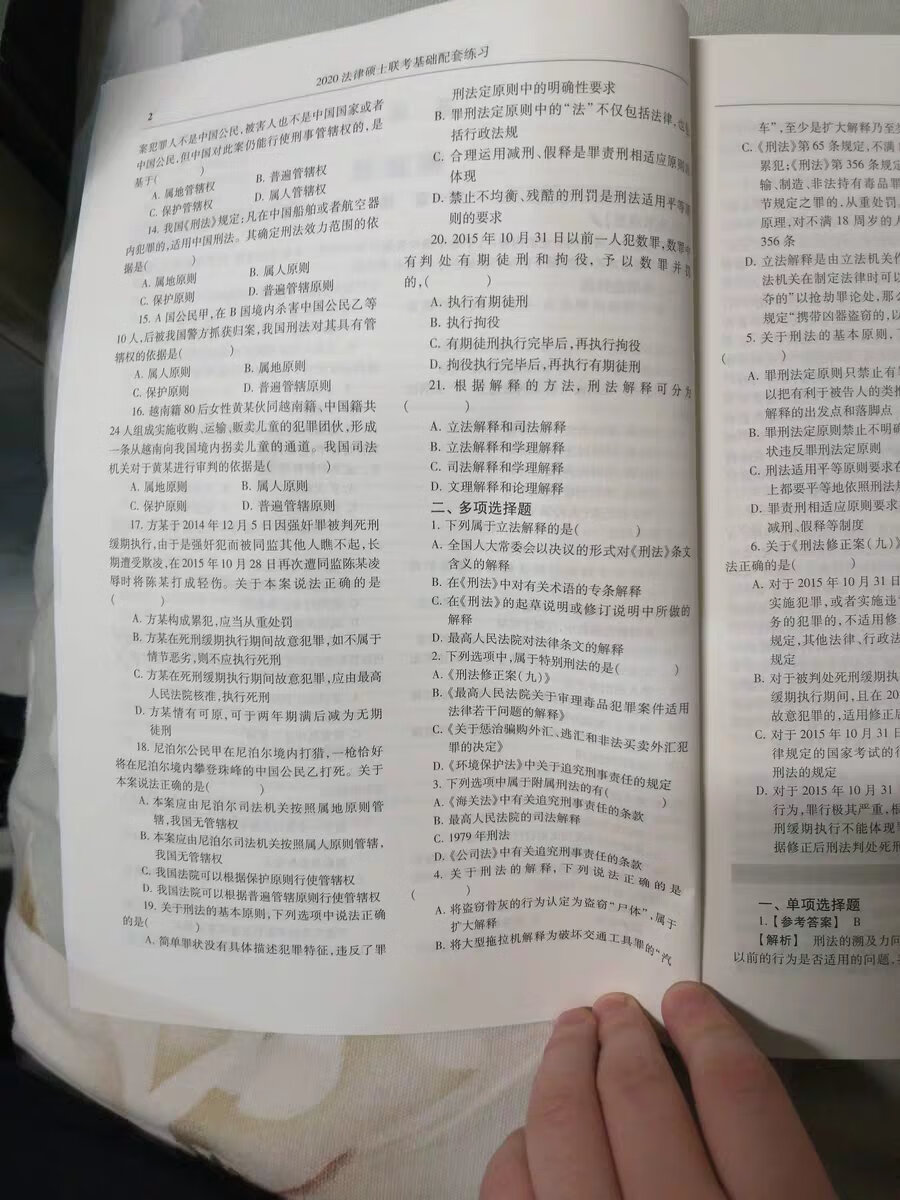 2020 法律硕士联考基础配套练习
2
案犯罪人不是中国公民,被害人也不是中国国家或者
中国公民,但中国对此案仍能行使刑事管辖权的,是
基于( )
A. 属地管辖权 B. 普遍管辖权
C. 保护管辖权 D. 属人管辖权
14. 我国《刑法》规定:凡在中国船舶或者航空器
内犯罪的,适用中国刑法。其确定刑法效力范围的依
据是( )
A. 属地原则 B. 属人原则
C. 保护原则 D. 普遍管辖原则
15. A 国公民甲,在 B 国境内杀害中国公民乙等
10 人,后被我国警方抓获归案,我国刑法对其具有管
辖权的依据是( )
A. 属人原则 B. 属地原则
C. 保护原则 D. 普遍管辖原则
16. 越南籍 80 后女性黄某伙同越南籍、中国籍共
24 人组成实施收购、运输、贩卖儿童的犯罪团伙,形成
一条从越南向我国境内拐卖儿童的通道。我国司法
机关对于黄某进行审判的依据是( )
A. 属地原则 B. 属人原则
C. 保护原则 D. 普遍管辖原则
17. 方某于 2014 年 12 月 5 日因强奸罪被判死刑
缓期执行,由于是强奸犯而被同监其他人瞧不起,长
期遭受欺凌,在 2015 年 10 月 28 日再次遭同监陈某凌
辱时将陈某打成轻伤。关于本案说法正确的是
( )
A. 方某构成累犯,应当从重处罚
B. 方某在死刑缓期执行期间故意犯罪,如不属于
情节恶劣,则不应执行死刑
C. 方某在死刑缓期执行期间故意犯罪,应由最高
人民法院核准,执行死刑
D. 方某情有可原,可于两年期满后减为无期
徒刑
18. 尼泊尔公民甲在尼泊尔境内打猎,一枪恰好
将在尼泊尔境内攀登珠峰的中国公民乙打死。关于
本案说法正确的是( )
A. 本案应由尼泊尔司法机关按照属地原则管
辖,我国无管辖权
B. 本案应由尼泊尔司法机关按照属人原则管辖,
我国无管辖权
C. 我国法院可以根据保护原则行使管辖权
D. 我国法院可以根据普遍管辖原则行使管辖权
19. 关于刑法的基本原则,下列选项中说法正确
的是( )
A. 简单罪状没有具体描述犯罪特征,违反了罪
刑法定原则中的明确性要求
B. 罪刑法定原则中的“法”不仅包括法律,也包
括行政法规
C. 合理运用减刑、假释是罪责刑相适应原则的
体现
D. 禁止不均衡、残酷的刑罚是刑法适用平等原
则的要求
20. 2015 年 10 月 31 日以前一人犯数罪,数罪中
有判处有期徒刑和拘役,予以数罪并罚
的,( )
A. 执行有期徒刑
B. 执行拘役
C. 有期徒刑执行完毕后,再执行拘役
D. 拘役执行完毕后,再执行有期徒刑
21. 根据解释的方法,刑法解释可分为
( )
A. 立法解释和司法解释
B. 立法解释和学理解释
C. 司法解释和学理解释
D. 文理解释和论理解释
二、多项选择题
1. 下列属于立法解释的是( )
A. 全国人大常委会以决议的形式对《刑法》条文
含义的解释
B. 在《刑法》中对有关术语的专条解释
C. 在《刑法》的起草说明或修订说明中所做的
解释
D. 最高人民法院对法律条文的解释
2. 下列选项中,属于特别刑法的是( )
A. 《刑法修正案(九)》
B. 《最高人民法院关于审理毒品犯罪案件适用
法律若干问题的解释》
C. 《关于惩治骗购外汇、逃汇和非法买卖外汇犯
罪的决定》
D. 《环境保护法》中关于追究刑事责任的规定
3. 下列选项中属于附属刑法的有( )
A. 《海关法》中有关追究刑事责任的条款
B. 最高人民法院的司法解释
C. 1979 年刑法
D. 《公司法》中有关追究刑事责任的条款
4. 关于刑法的解释,下列说法正确的是
( )
A. 将盗窃骨灰的行为认定为盗窃“尸体”,属于
扩大解释
B. 将大型拖拉机解释为破坏交通工具罪的“汽
车”,至少是扩大解释乃至
C. 《刑法》第 65 条规定,不满
累犯;《刑法》第 356 条规定
输、制造、非法持有毒品罪
节规定之罪的,从重处罚。
原理,对不满 18 周岁的人
356 条
D. 立法解释是由立法机关作
法机关在制定法律时可以
夺的”以抢劫罪论处,那么
规定“携带凶器盗窃的,以
5. 关于刑法的基本原则,
( )
A. 罪刑法定原则只禁止有
以把有利于被告人的类推
解释的出发点和落脚点
B. 罪刑法定原则禁止不明确
状违反罪刑法定原则
C. 刑法适用平等原则要求在
上都要平等地依照刑法规
D. 罪责刑相适应原则要求
减刑、假释等制度
6. 关于《刑法修正案(九)》
法正确的是( )
A. 对于 2015 年 10 月 31 日
实施犯罪,或者实施违
务的犯罪的,不适用修
规定,其他法律、行政法
规定
B. 对于被判处死刑缓期执
缓期执行期间,且在 20
故意犯罪的,适用修正后
C. 对于 2015 年 10 月 31 日
律规定的国家考试的行
刑法的规定
D. 对于 2015 年 10 月 31
行为,罪行极其严重,根
刑缓期执行不能体现
据修正后刑法判处死刑
一、单项选择题
1.【参考答案】 B
【解析】 刑法的溯及力问
以前的行为是否适用的问题,